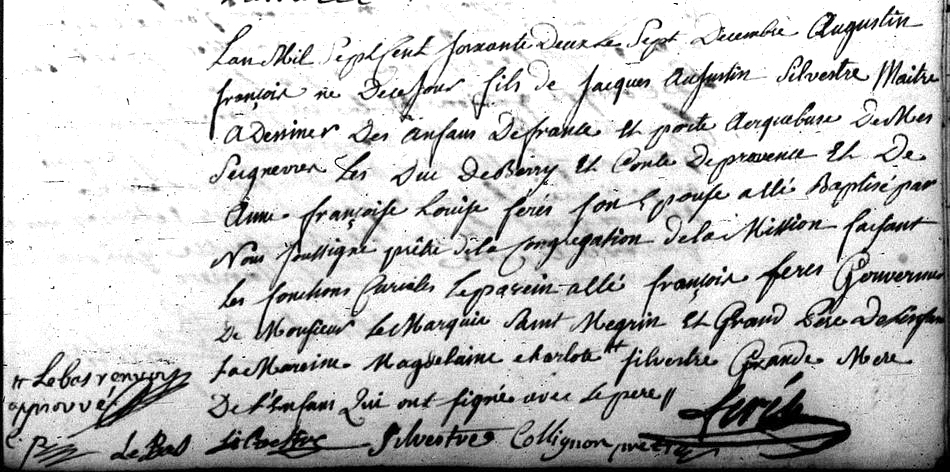 Lan Mil Sept Cent soixante Deux Le Sept Decembre Augustin
françois né De ce Jour fils de Jacques Augustin Silvestre Maitre
A Dessiner Des Anfans De france Et porte Arquebuse De Mes
Seigneurs Les Duc De Berry Et Conte De provence Et De
Anne françoise Louise ferés son Epouse a Eté Baptisé par
Nous soussigné prêtre de la Congregation de la Mission faisant
Les fonctions Curiales Le parein a Eté françois feres Gouverneur
De Monsieur Le Marquis Saint Megrin Et Grand Pere De
La Mareine Magdelaine charlote # silvestre Grande Mere
De l'Enfans Qui ont signé avec Le pere //
# Le bas renvoy
approuvé
ferés
Le Bas Silvestre Collignon